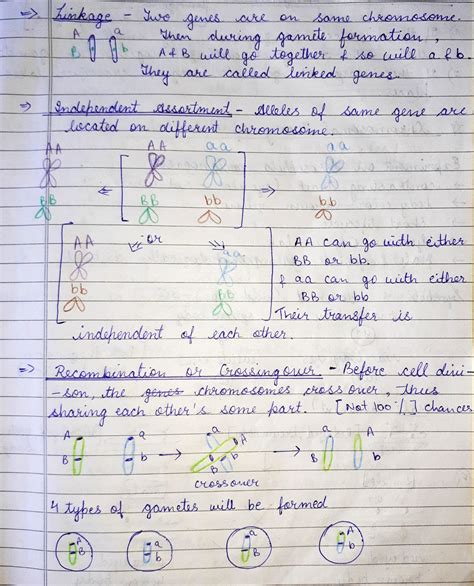 => Linkage - Two genes are on same chromosome.
A a Then during gamite formation,
B b A & B will go together & so will a & b.
They are called linked genes.
=> Independent Assortment - Alleles of same gene are
located on different chromosome.
AA AA aa aa
BB BB bb bb
AA or aa AA can go with either
BB or bb.
bb BB & aa can go with either
BB or bb
Their transfer is
independent of each other.
=> Recombination or Crossing over. - Before cell divi-
-son, the genes chromosomes cross over, Thus
sharing each other's some part. [Not 100%] chances
A a a A a A
B b B b B b
crossover
4 types of gametes will be formed
A a a A
B b B b